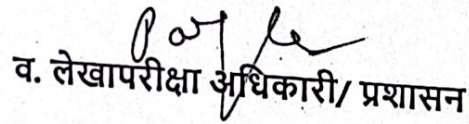 व. लेखापरीक्षा अधिकारी/ प्रशासन